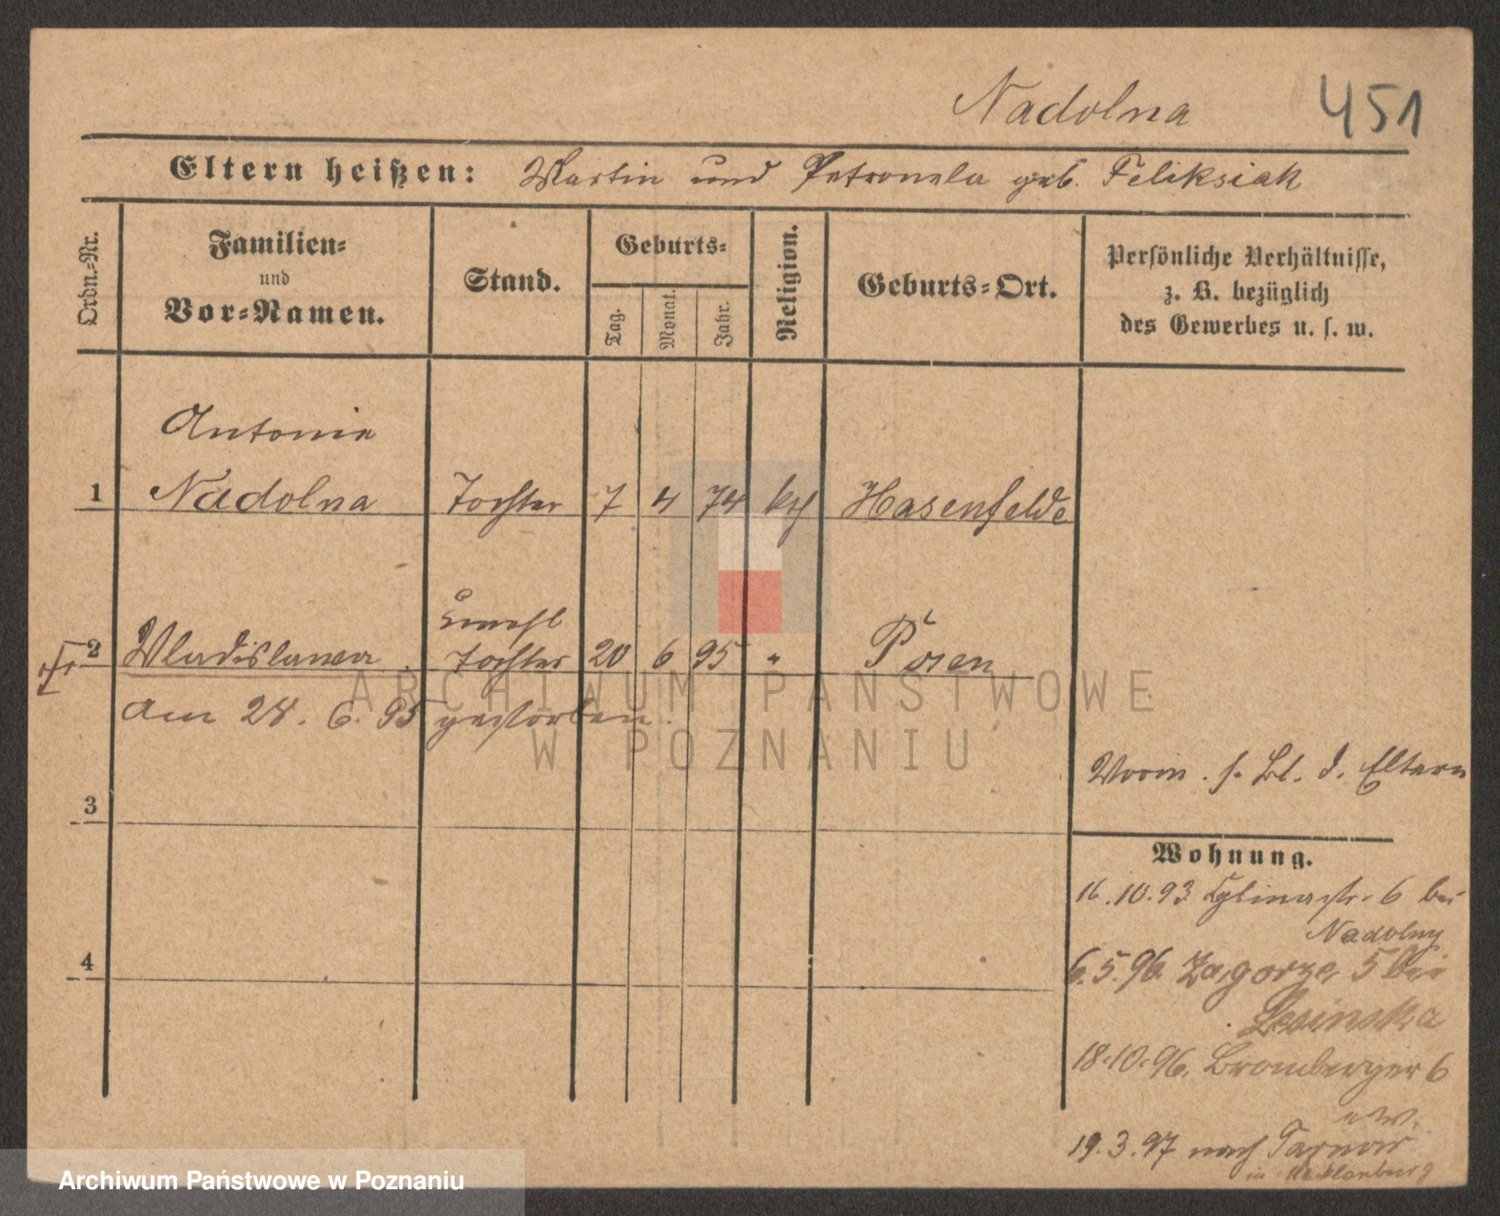 Nadolna 451
Eltern heißen: Martin und Petronela geb. Feliksiak
Ordn.-Nr.
Familien-
und
Vor-Namen.
Stand.
Geburts-
Tag.
Monat.
Jahr.
Religion.
Geburts-Ort.
Persönliche Verhältnisse,
z. B. bezüglich
des Gewerbes u. s. w.
Antonie
1 Nadolna Tochter 7 4 74 kth Hasenfelde
unehl
2 Wladislawa Tochter 20 6 95 " Posen
am 28. 6. 95 gestorben.
Vorm. s. Bl. d. Eltern
3
Wohnung.
16.10.93 str. 6 bei
Nadolny
4
6.5.96 Zagorze 5 bei
Lesinska
18.10.96. Bromberger 6
19.3.97 nach Tarnow
in Mecklenburg
ARCHIWUM PAŃSTWOWE
W POZNANIU
Archiwum Państwowe w Poznaniu